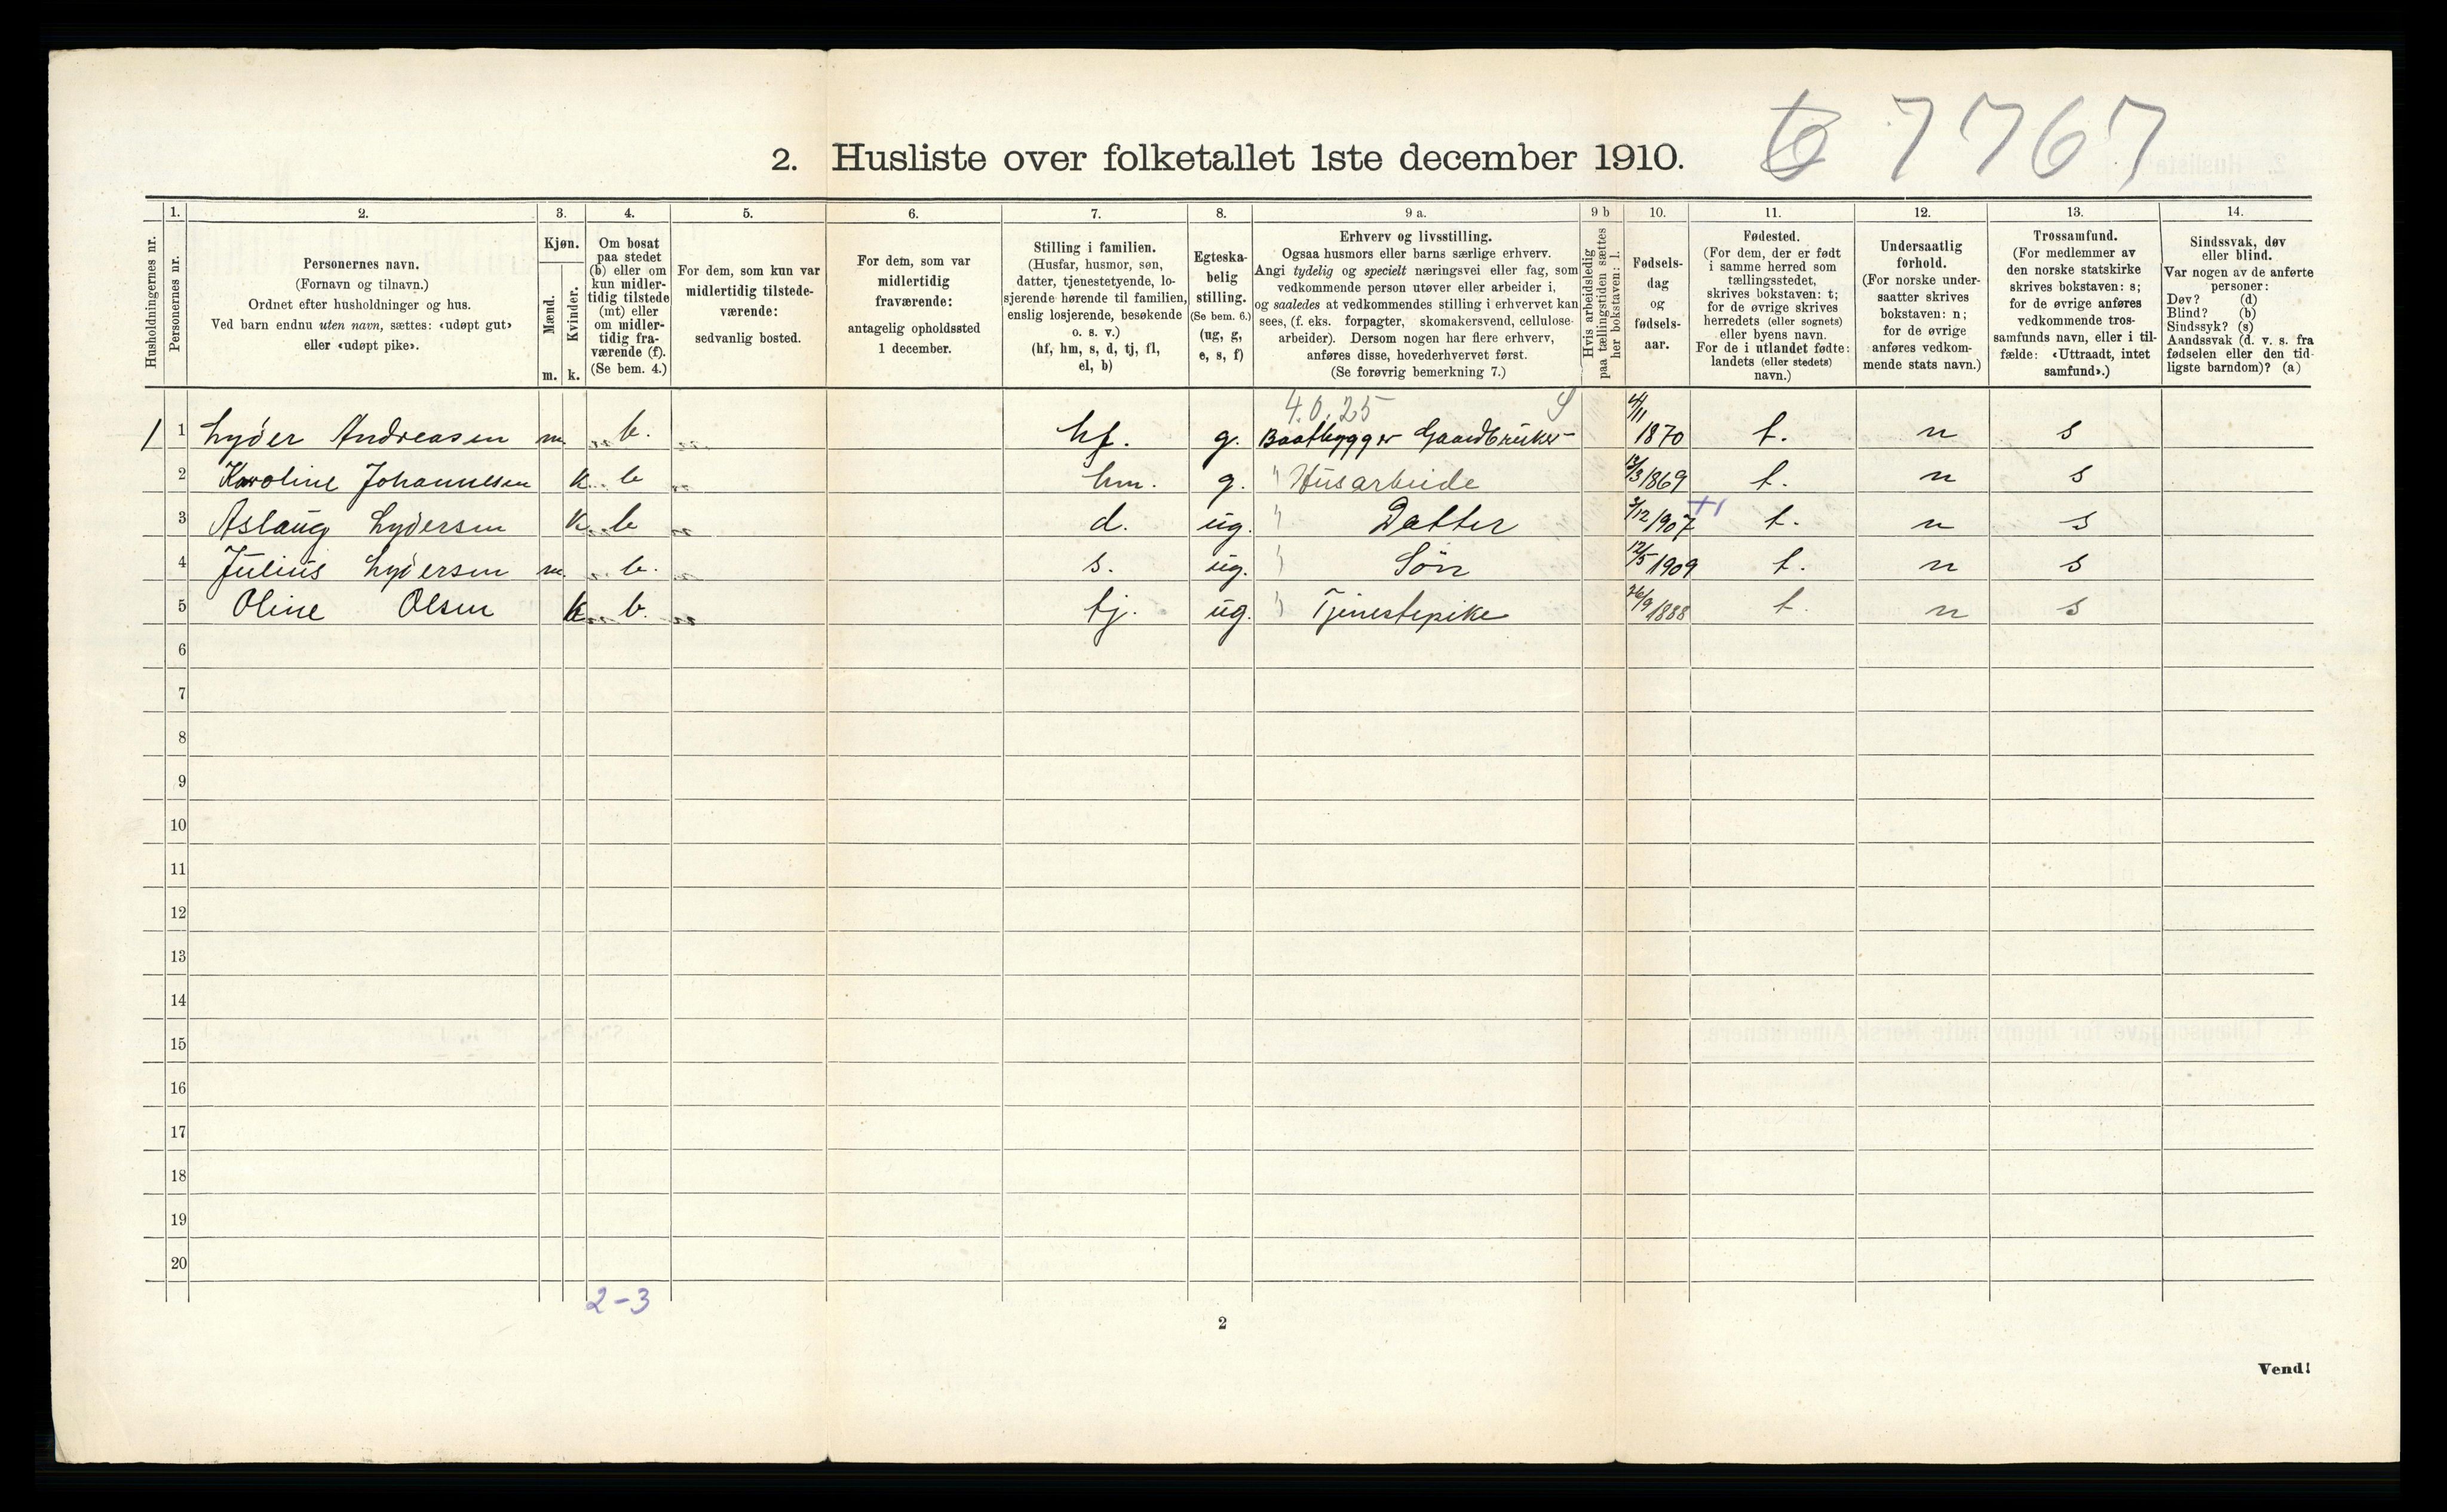 7767
2. Husliste over folketallet 1ste december 1910.
Husholdningernes nr.
1.
Personernes nr.
2.
Personernes navn.
(Fornavn og tilnavn.)
Ordnet efter husholdninger og hus.
Ved barn endnu uten navn, sættes: «udøpt gut»
eller «udøpt pike».
3.
Kjøn.
Mænd.
Kvinder.
m. k.
4.
Om bosat
paa stedet
(b) eller om
kun midler-
tidig tilstede
(mt) eller
om midler-
tidig fra-
værende (f).
(Se bem. 4.)
5.
For dem, som kun var
midlertidig tilstede-
værende:
sedvanlig bosted.
6.
For dem, som var
midlertidig
fraværende:
antagelig opholdssted
1 december.
7.
Stilling i familien.
(Husfar, husmor, søn,
datter, tjenestetyende, lo-
sjerende hørende til familien,
enslig losjerende, besøkende
o. s. v.)
(hf, hm, s, d, tj, fl,
el, b)
8.
Egteska-
belig
stilling.
(Se bem. 6.)
(ug, g,
e, s, f)
9 a.
Erhverv og livsstilling.
Ogsaa husmors eller barns særlige erhverv.
Angi tydelig og specielt næringsvei eller fag, som
vedkommende person utøver eller arbeider i,
og saaledes at vedkommendes stilling i erhvervet kan
sees, (f. eks. forpagter, skomakersvend, cellulose-
arbeider). Dersom nogen har flere erhverv,
anføres disse, hovederhvervet først.
(Se forøvrig bemerkning 7.)
9 b
Hvis arbeidsledig
paa tællingstiden sættes
her bokstaven: l.
10.
Fødsels-
dag
og
fødsels-
aar.
11.
Fødested.
(For dem, der er født
i samme herred som
tællingsstedet,
skrives bokstaven: t;
for de øvrige skrives
herredets (eller sognets)
eller byens navn.
For de i utlandet fødte:
landets (eller stedets)
navn.)
12.
Undersaatlig
forhold.
(For norske under-
saatter skrives
bokstaven: n;
for de øvrige
anføres vedkom-
mende stats navn.)
13.
Trossamfund.
(For medlemmer av
den norske statskirke
skrives bokstaven: s;
for de øvrige anføres
vedkommende tros-
samfunds navn, eller i til-
fælde: «Uttraadt, intet
samfund».)
14.
Sindssvak, døv
eller blind.
Var nogen av de anførte
personer:
Døv? (d)
Blind? (b)
Sindssyk? (s)
Aandssvak (d. v. s. fra
fødselen eller den tid-
ligste barndom)? (a)
4.0.25
1 1 Lyder Andreasen m. b. hf. g. Baatbygger Gaardbruker 4/11 1870 t. n s
2 Karoline Johannesen k. b hm. g. " Husarbeide 13/3 1869 t. n s
3 Aslaug Lydersen k. b d. ug. " Datter 3/12 1907 t. n s
4 Julius Lydersen m. b. s. ug. " Søn 12/5 1909 t. n s
5 Oline Olsen k. b. tj. ug. " Tjenestepike 26/9 1888 t. n s
6
7
8
9
10
11
12
13
14
15
16
17
18
19
20
2-3
2
Vend!